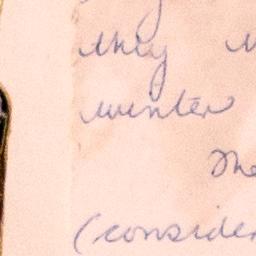 they
winter
The
(consider